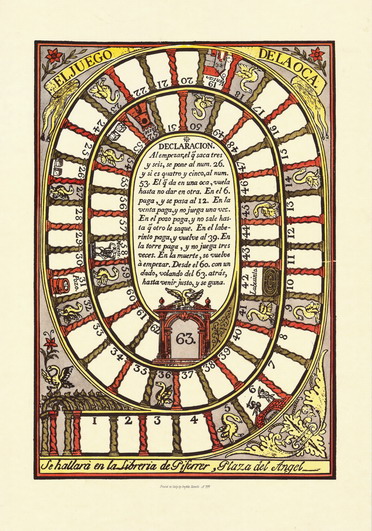 EL JUEGO DE LA OCA.
DECLARACION.
Al empezar, el q̃ saca tres
y seis, se pone al num. 26.
y si es quatro y cinco, al num.
53. El q̃ da en una oca, vuela
hasta no dar en otra. En el 6.
paga, y se pasa al 12. En la
venta paga, y no juega una vez.
En el pozo paga, y no sale has-
ta q̃ otro le saque. En el labe-
rinto paga, y vuelve al 39. En
la torre paga, y no juega tres
veces. En la muerte, se vuelve
à empezar. Desde el 60. con un
dado, volando del 63. atrás,
hasta venir justo, y se gana.
63.
1 2 3 4
6
7
10
11
13
14
15
16
17
20
24
25
26
28
29
30
33
34
35
36
37
38
39
40
42
43
44
46
48
50
51
55
56
57
58
60
61
62
Se hallará en la Librería de Piferrer, Plaza del Angel